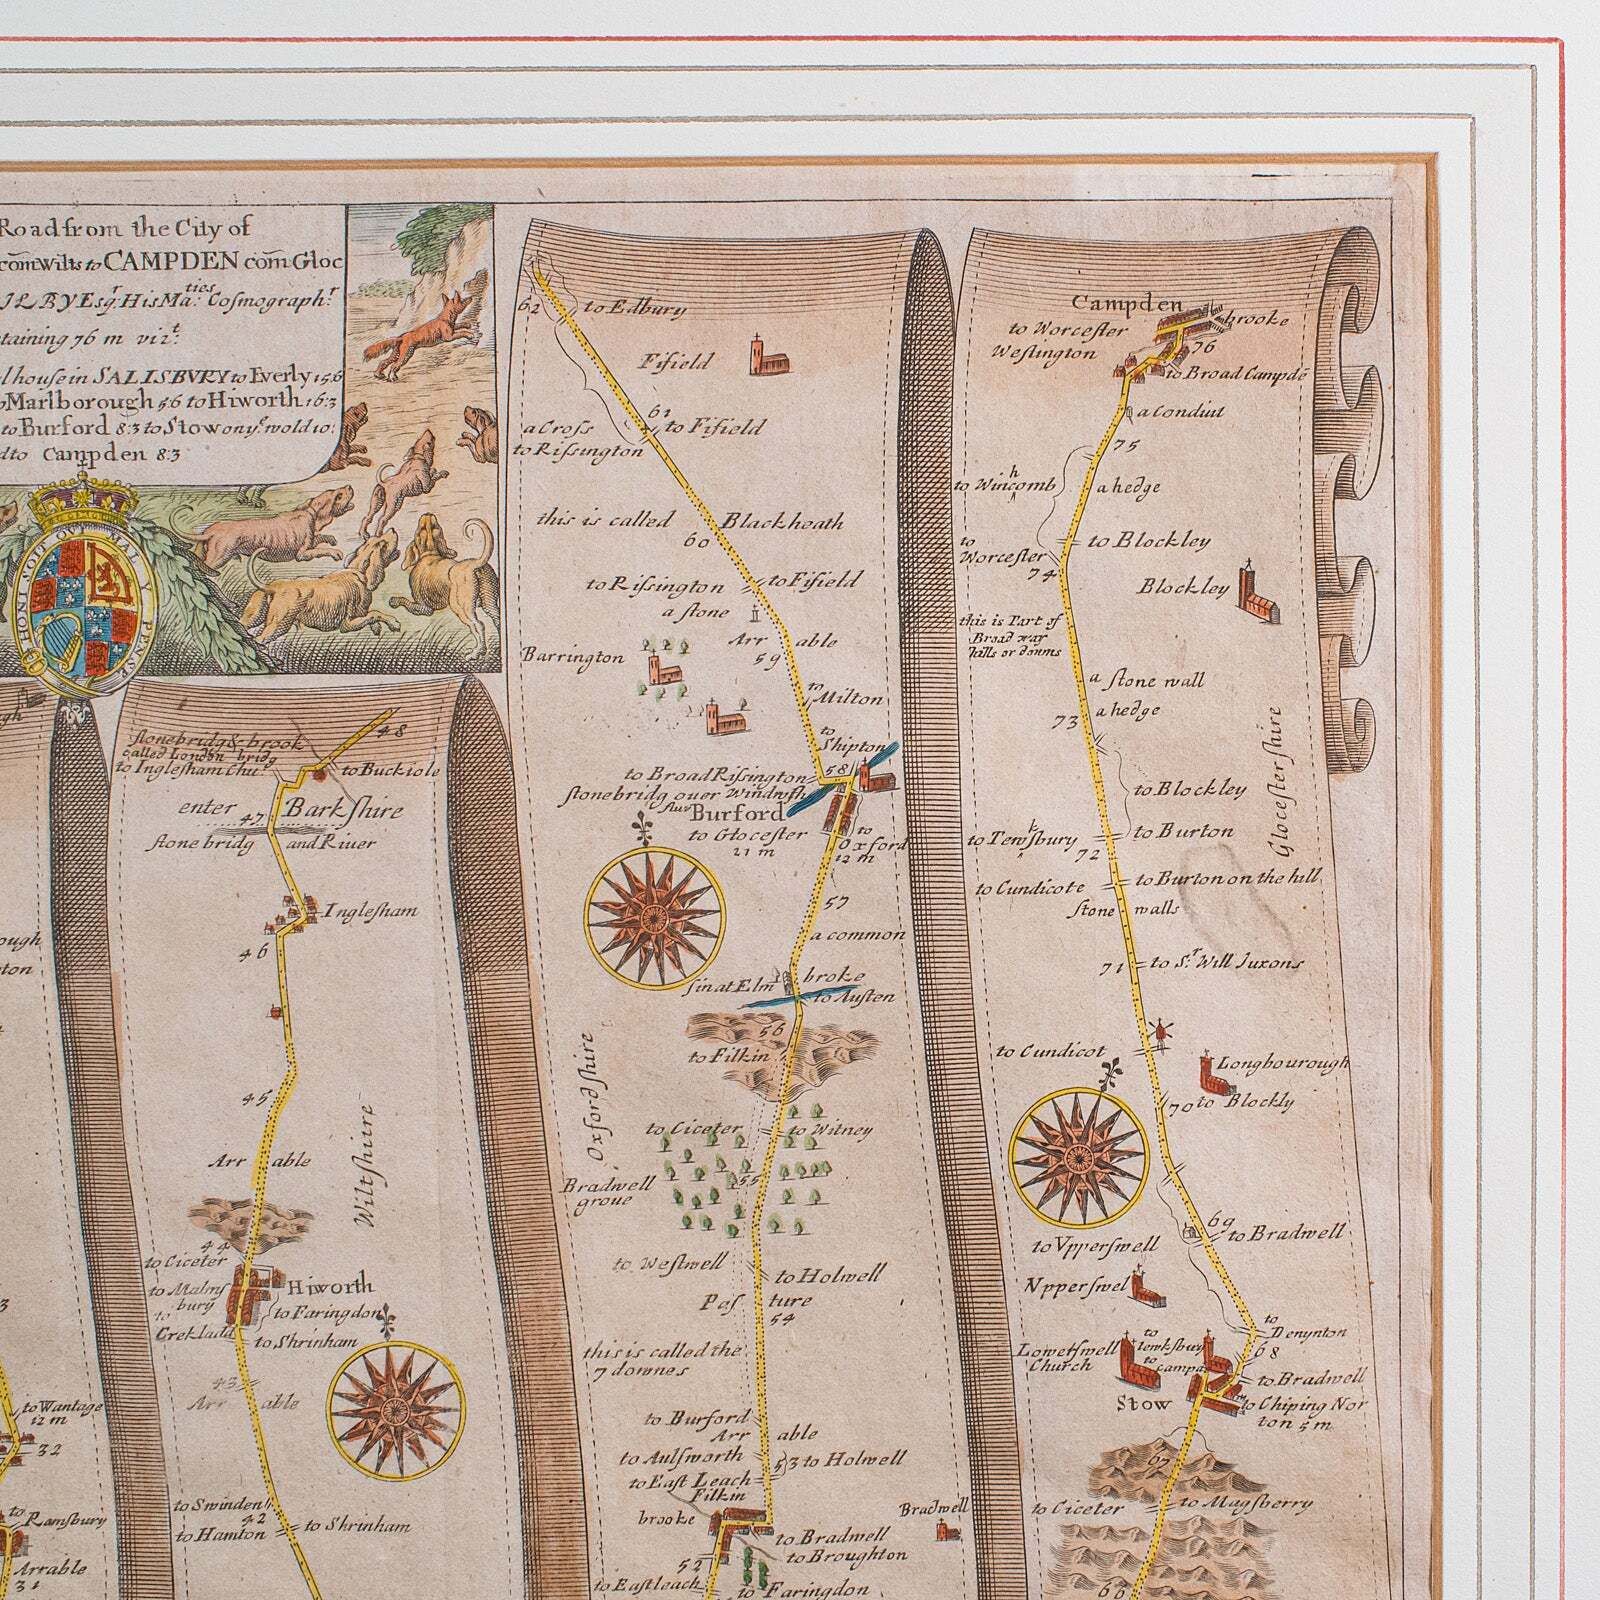 Road from the City of
com̄ Wilts to CAMPDEN com̄ Gloc
JLBY Esqr. His Maties: Cosmographr.
taining 76 m vizt.
lhouse in SALISBVRY to Everly 15:6
Marlborough 5:6 to Hiworth 16:3
to Burford 8:3 to Stow on ye wold 10:
dto Campden 8:3
HONI SOIT QUI MAL Y PENSE
48
stonebridg & brook
called London bridg
to Inglesham Chu:
to Buckiole
enter Bark shire
47
stone bridg and River
Inglesham
46
45
Arr able
Wiltshire
44
to Ciceter
to Malms
bury
Hiworth
to Faringdon
to
Crekladd
to Shrinham
43
Arr able
to Swinden
42
to Hamton
to Shrinham
to Wantage
12 m
32
to
Ramsbury
Arrable
31
62
to Edbury
Fifield
61
a Cross
to Fifield
to Rissington
this is called Blackheath
60
to Rissington
to Fifield
a stone
Arr able
59
Barrington
to Milton
to
Shipton
58
to Broad Rissington
stonebridg over Windrush
fluv
Burford
to Glocester
21 m
to
Oxford
12 m
57
a common
sinat Elm
broke
to Austen
56
to Filkin
Oxfordshire
to Ciceter
to Witney
Bradwell
groue
55
to Westwell
to Holwell
Pas ture
54
this is called the
7 downes
to Burford
Arr able
to Aulsworth
53
to Holwell
to East Leach
Filkin
brooke
Bradwell
to Bradwell
to Broughton
52
to Eastleach
to Faringdon
Campden
to Worcester
brooke
Westington
76
to Broad Campde
a Conduit
75
to Wincomb
h
a hedge
to
Worcester
to Blockley
74
Blockley
this is Part of
Broad way
hills or downs
a stone wall
a hedge
73
Glocestershire
to Blockley
to Tewksbury
to Burton
72
to Cundicote
to Burton on the hill
stone walls
71
to Sr. Will Juxons
to Cundicot
Longbourough
70
to Blockly
69
to Bradwell
to Vpperswell
Vpperswel
to
Denynton
68
Loweswell
Church
to
tewksbury
to
campd
to Bradwell
Stow
to Chiping Nor
ton 5 m
67
to Ciceter
to Magsberry
66